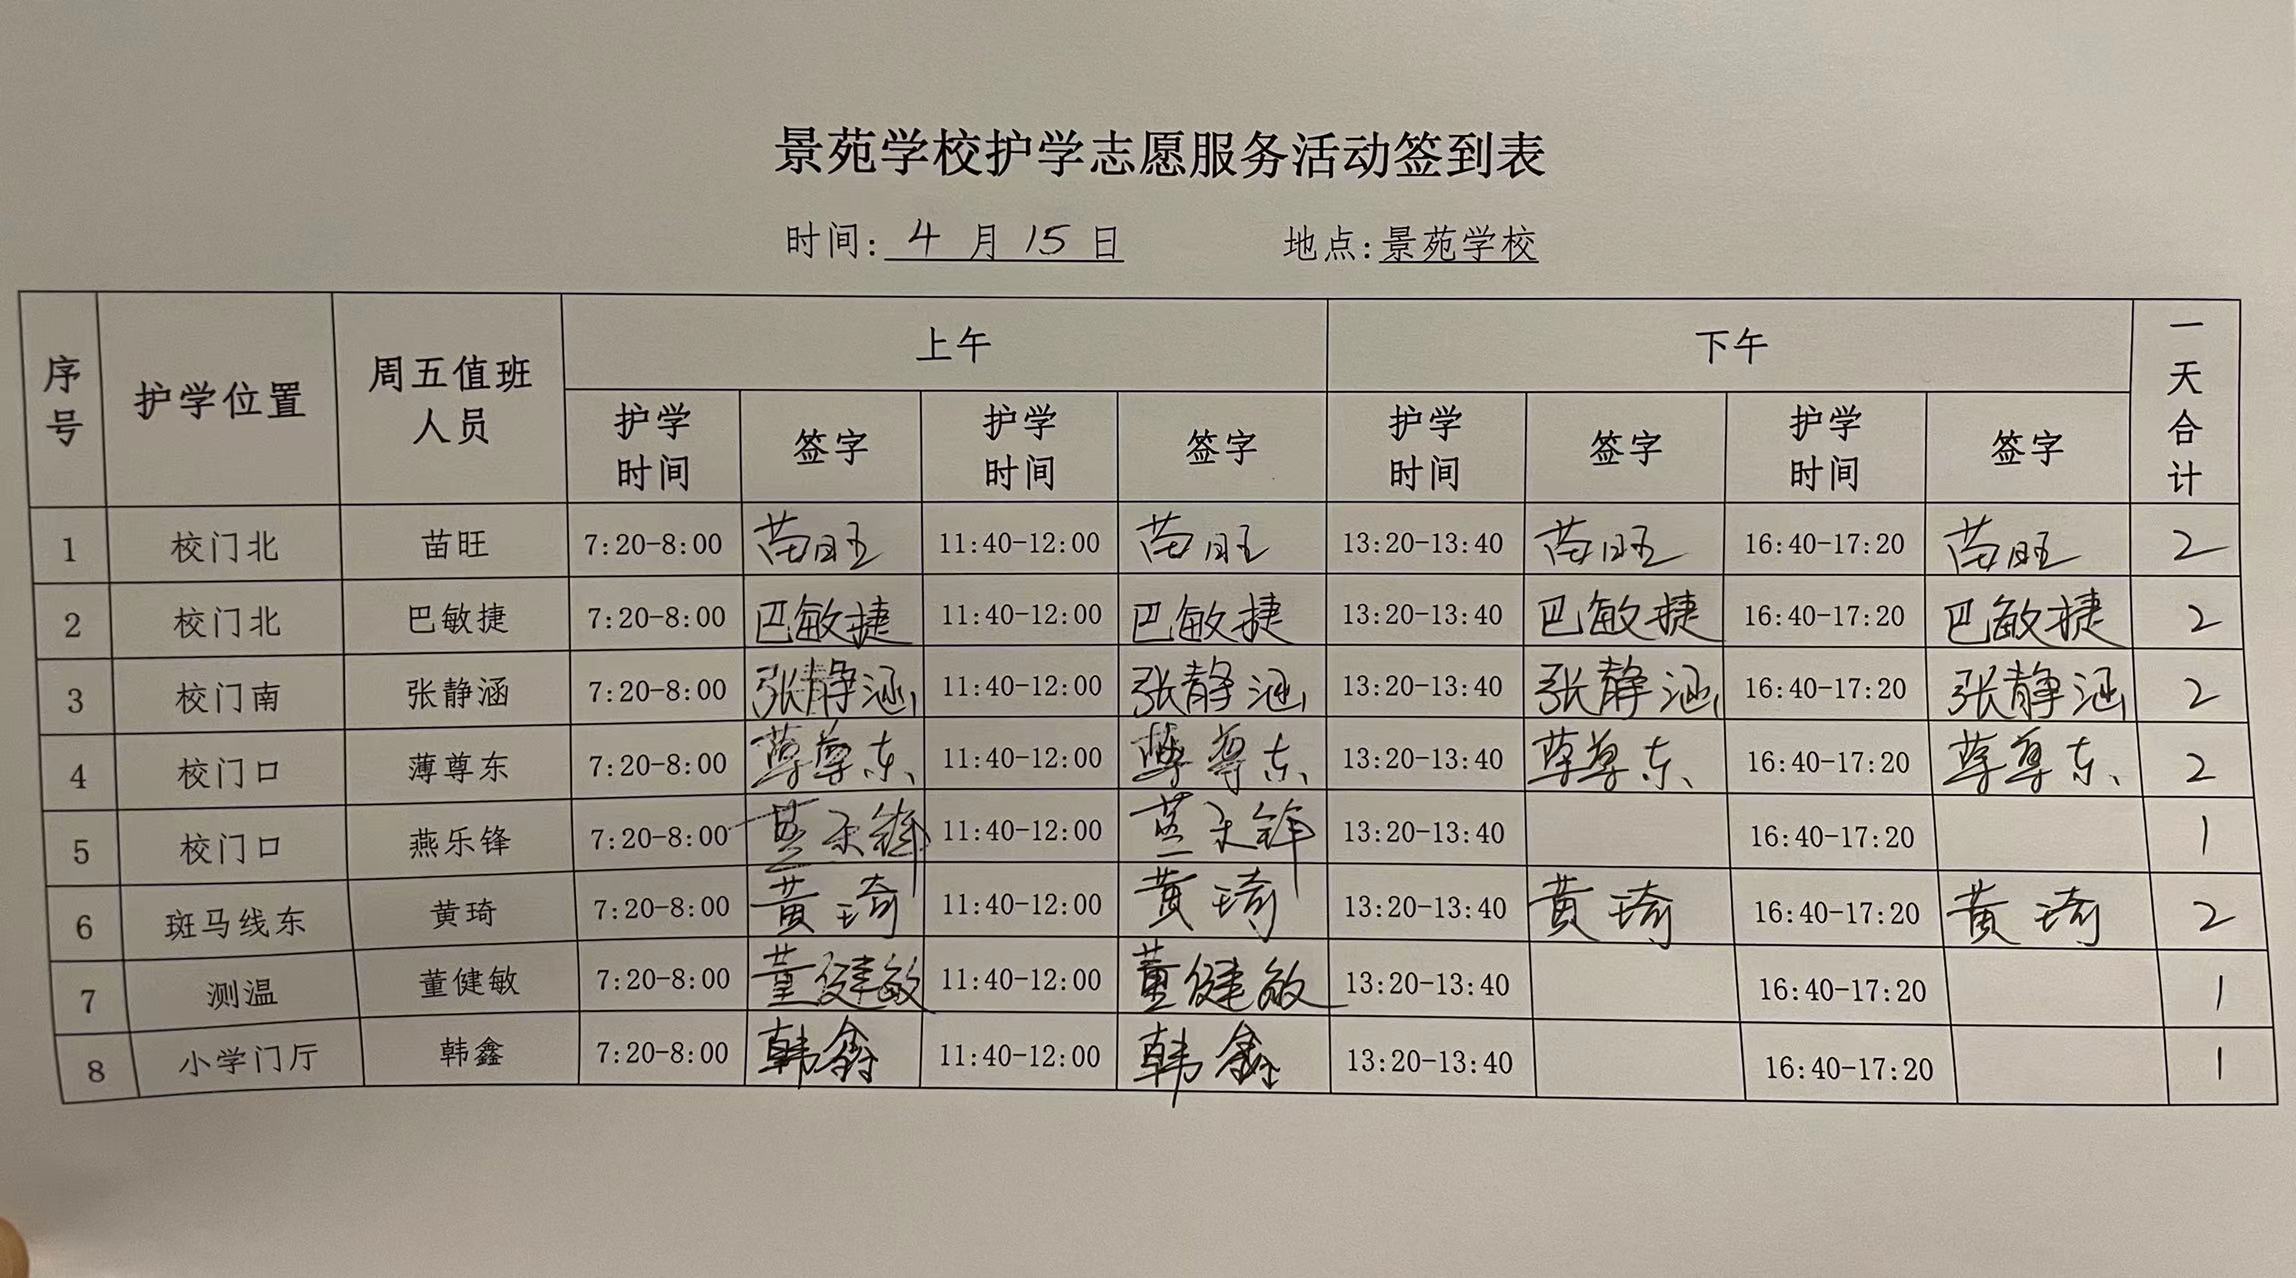 景苑学校护学志愿服务活动签到表
时间: 4 月 15 日 地点:景苑学校
序号 护学位置 周五值班人员 上午 下午 一天合计
护学时间 签字 护学时间 签字 护学时间 签字 护学时间 签字
1 校门北 苗旺 7:20-8:00 苗旺 11:40-12:00 苗旺 13:20-13:40 苗旺 16:40-17:20 苗旺 2
2 校门北 巴敏捷 7:20-8:00 巴敏捷 11:40-12:00 巴敏捷 13:20-13:40 巴敏捷 16:40-17:20 巴敏捷 2
3 校门南 张静涵 7:20-8:00 张静涵 11:40-12:00 张静涵 13:20-13:40 张静涵 16:40-17:20 张静涵 2
4 校门口 薄尊东 7:20-8:00 薄尊东 11:40-12:00 薄尊东 13:20-13:40 薄尊东 16:40-17:20 薄尊东 2
5 校门口 燕乐锋 7:20-8:00 燕乐锋 11:40-12:00 燕乐锋 13:20-13:40 16:40-17:20 1
6 斑马线东 黄琦 7:20-8:00 黄琦 11:40-12:00 黄琦 13:20-13:40 黄琦 16:40-17:20 黄琦 2
7 测温 董健敏 7:20-8:00 董健敏 11:40-12:00 董健敏 13:20-13:40 16:40-17:20 1
8 小学门厅 韩鑫 7:20-8:00 韩鑫 11:40-12:00 韩鑫 13:20-13:40 16:40-17:20 1